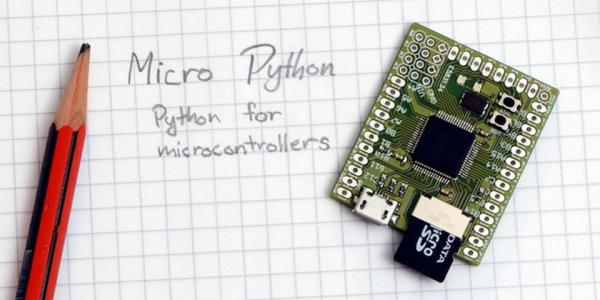 Micro Python
Python for
microcontrollers
DATA
Micro
SD